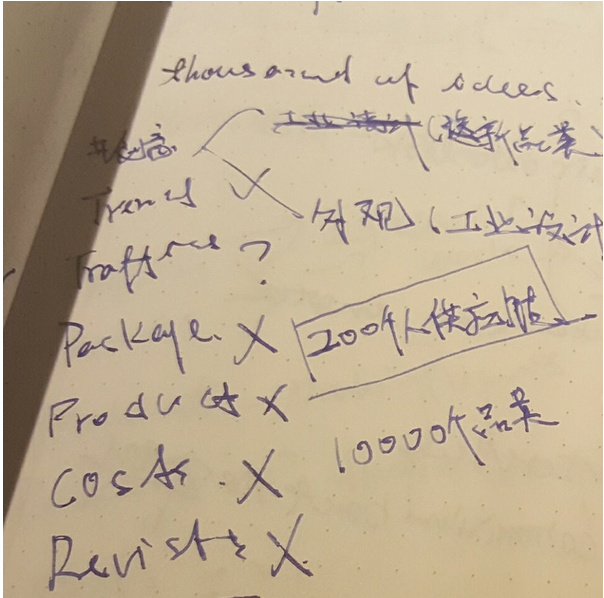 thousand of ideas.
工业设计 (选新品类)
Trend ✓
外观 (工业设计
?
Package. X
200个人供应链
Products X
10000个品类
Costs. X
X